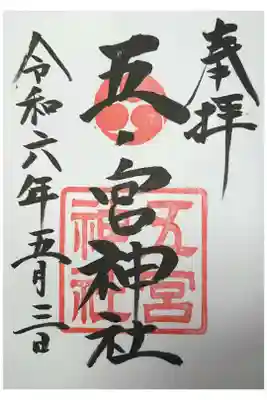 奉拝
五ノ宮神社
令和六年五月三日
五宮
神社